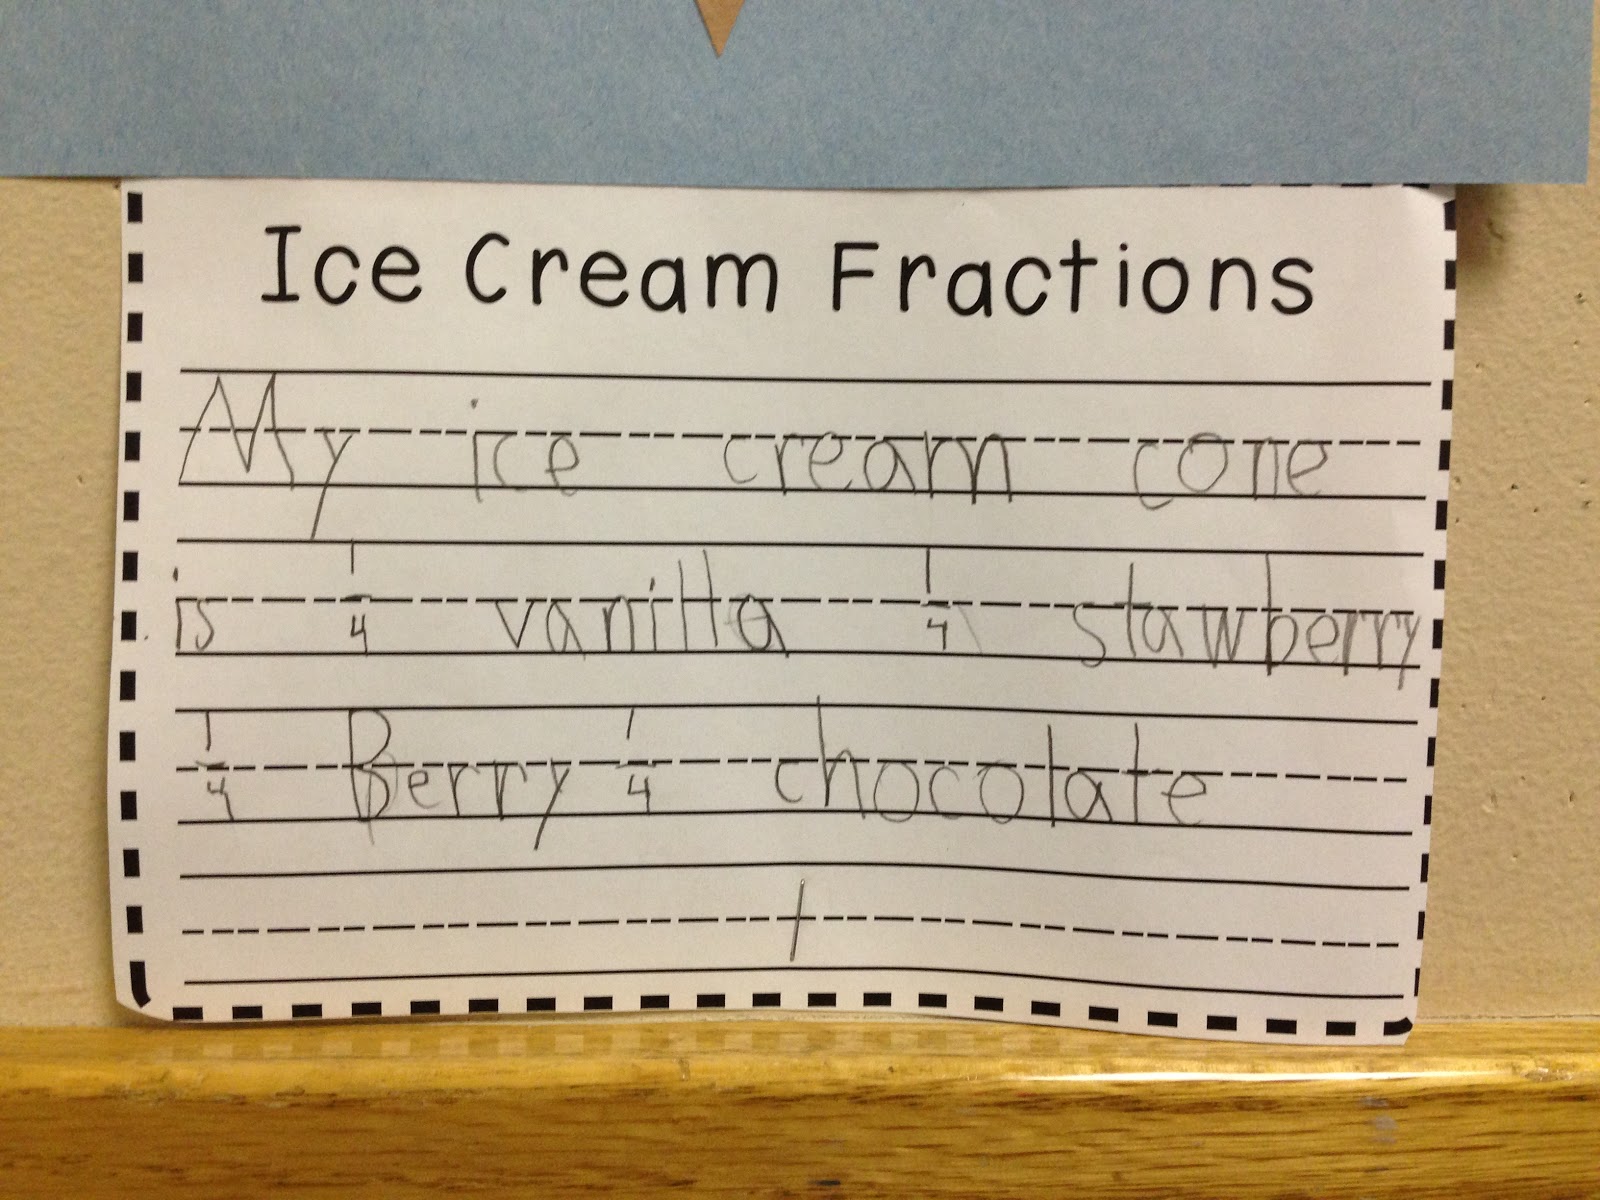 Ice Cream Fractions
My ice cream cone
is 1/4 vanilla 1/4 stawberry
1/4 Berry 1/4 chocolate